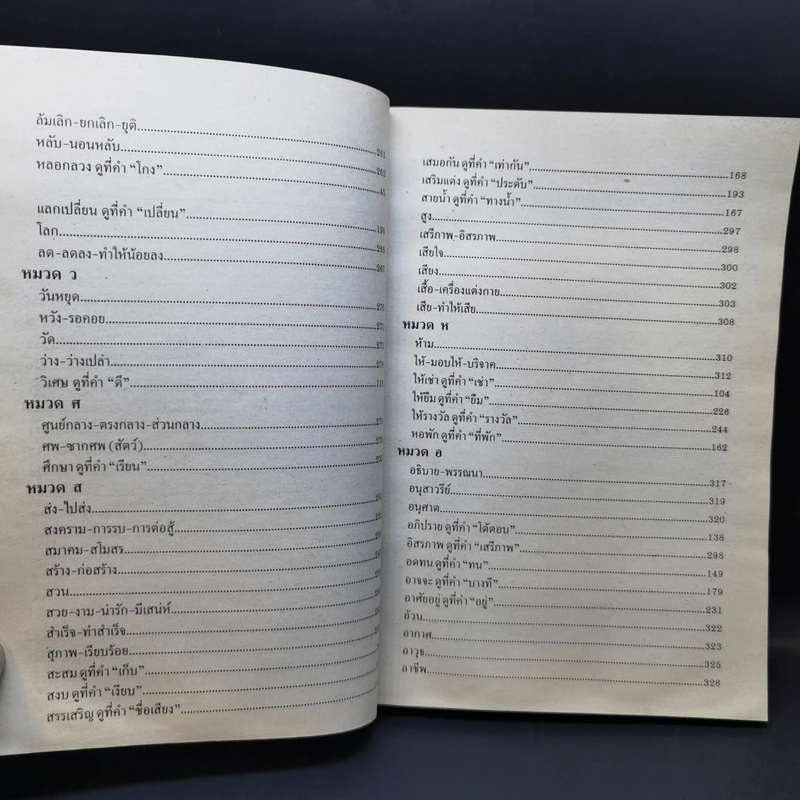 ล้มเลิก-ยกเลิก-ยุติ
หลับ-นอนหลับ 261
หลอกลวง ดูที่คำ "โกง" 263
45
แลกเปลี่ยน ดูที่คำ "เปลี่ยน"
โลก 190
ลด-ลดลง-ทำให้น้อยลง 265
267
หมวด ว
วันหยุด
หวัง-รอคอย
วัด
ว่าง-ว่างเปล่า
วิเศษ ดูที่คำ "ดี"
หมวด ศ
ศูนย์กลาง-ตรงกลาง-ส่วนกลาง
ศพ-ซากศพ (สัตว์)
ศึกษา ดูที่คำ "เรียน"
หมวด ส
ส่ง-ไปส่ง
สงคราม-การรบ-การต่อสู้
สมาคม-สโมสร
สร้าง-ก่อสร้าง
สวน
สวย-งาม-น่ารัก-มีเสน่ห์
สำเร็จ-ทำสำเร็จ
สุภาพ-เรียบร้อย
สะสม ดูที่คำ "เก็บ"
สงบ ดูที่คำ "เงียบ"
สรรเสริญ ดูที่คำ "ชื่อเสียง"
เสมอกัน ดูที่คำ "เท่ากัน" 168
เสริมแต่ง ดูที่คำ "ประดับ" 193
สายน้ำ ดูที่คำ "ทางน้ำ" 167
สูง 297
เสรีภาพ-อิสรภาพ 298
เสียใจ 300
เสียง 302
เสื้อ-เครื่องแต่งกาย 303
เสีย-ทำให้เสีย 308
หมวด ห
ห้าม 310
ให้-มอบให้-บริจาค 312
ให้เช่า ดูที่คำ "เช่า" 104
ให้ยืม ดูที่คำ "ยืม" 226
ให้รางวัล ดูที่คำ "รางวัล" 244
หอพัก ดูที่คำ "ที่พัก" 162
หมวด อ
อธิบาย-พรรณนา 317
อนุสาวรีย์ 319
อนุศาต 320
อภิปราย ดูที่คำ "โต้ตอบ" 138
อิสรภาพ ดูที่คำ "เสรีภาพ" 298
อดทน ดูที่คำ "ทน" 149
อาจจะ ดูที่คำ "บางที" 179
อาศัยอยู่ ดูที่คำ "อยู่" 231
อ้วน 322
อากาศ 323
อาวุธ 325
อาชีพ 326